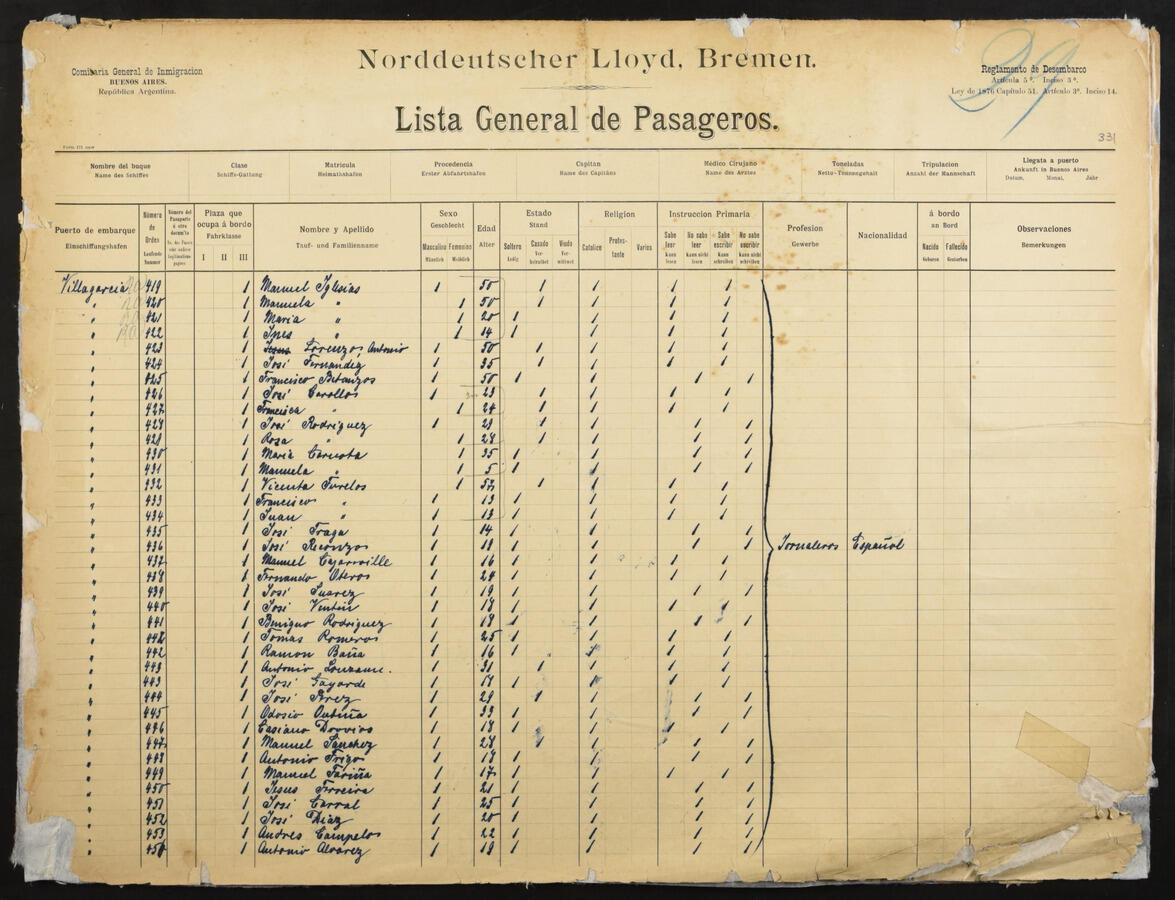 Comisaria General de Inmigracion
BUENOS AIRES.
República Argentina.
Norddeutscher Lloyd, Bremen.
Lista General de Pasageros.
29
Reglamento de Desembarco
Artícula 5º. Inciso 3º.
Ley de 1876 Capítulo 51. Artículo 3º. Inciso 14.
331
Nombre del buque Clase Matricula Procedencia Capitan Médico Cirujano Toneladas Tripulacion Llegata a puerto
Name des Schiffes Schiffs-Gattung Heimathshafen Erster Abfahrtshafen Name des Capitäns Name des Arztes Netto-Tonnengehalt Anzahl der Mannschaft Ankunft in Buenos Aires
Datum, Monat, Jahr
Puerto de embarque
Einschiffungshafen
Número de Orden
Laufende Nummer
Plaza que ocupa á bordo
Fahrklasse
I II III
Nombre y Apellido
Tauf- und Familienname
Sexo
Geschlecht
Masculino Femenino
Männlich Weiblich
Edad
Alter
Estado
Stand
Soltero Casado Viudo
Ledig Verheirathet Verwittwet
Religion
Catolica Protestante Varios
Instruccion Primaria
Sabe leer No sabe leer Sabe escribir No sabe escribir
kann lesen kann nicht lesen kann schreiben kann nicht schreiben
Profesion
Gewerbe
Nacionalidad
á bordo
an Bord
Nacido Fallecido
Geboren Gestorben
Observaciones
Bemerkungen
Villagarcia 419 1 Manuel Iglesias 1 50 1 1 1 1
" 420 1 Manuela " 1 50 1 1 1 1
" 421 1 Maria " 1 20 1 1 1 1
" 422 1 Ines " 1 14 1 1 1 1
" 423 1 Lorenzos, Antonio 1 50 1 1 1 1
" 424 1 José Fernandez 1 35 1 1 1 1
" 425 1 Francisco Betanzos 1 50 1 1 1 1
" 426 1 José Carollos 1 23 1 1 1 1
" 427 1 Francisca " 1 24 1 1 1 1
" 428 1 José Rodriguez 1 29 1 1 1 1
" 429 1 Rosa " 1 28 1 1 1 1
" 430 1 Maria Carnota 1 35 1 1 1 1
" 431 1 Manuela " 1 5 1 1 1 1
" 432 1 Vicenta Turelos 1 52 1 1 1 1
" 433 1 Francisco " 1 13 1 1 1 1
" 434 1 Juan " 1 13 1 1 1 1
" 435 1 José Fraga 1 14 1 1 1 1
" 436 1 José 1 18 1 1 1 1 Jornaleros Español
" 437 1 Manuel 1 16 1 1 1 1
" 438 1 Fernando Oteros 1 24 1 1 1 1
" 439 1 José Suarez 1 19 1 1 1 1
" 440 1 José Ventin 1 18 1 1 1 1
" 441 1 Benigno Rodriguez 1 18 1 1 1 1
" 442 1 Tomas Romeros 1 25 1 1 1 1
" 442 1 Ramon Baña 1 16 1 1 1 1
" 443 1 Antonio 1 31 1 1 1 1
" 443 1 José Gayarde 1 17 1 1 1 1
" 444 1 José Perez 1 29 1 1 1 1
" 445 1 Odosio Outiña 1 33 1 1 1 1
" 446 1 Casiano 1 18 1 1 1 1
" 447 1 Manuel Sanchez 1 28 1 1 1 1
" 448 1 Antonio Trigo 1 18 1 1 1 1
" 449 1 Manuel Fariña 1 17 1 1 1 1
" 450 1 Jesus Ferreira 1 21 1 1 1 1
" 451 1 José Carral 1 25 1 1 1 1
" 452 1 José Diaz 1 20 1 1 1 1
" 453 1 Andres Campelos 1 22 1 1 1 1
" 454 1 Antonio Alvarez 1 19 1 1 1 1